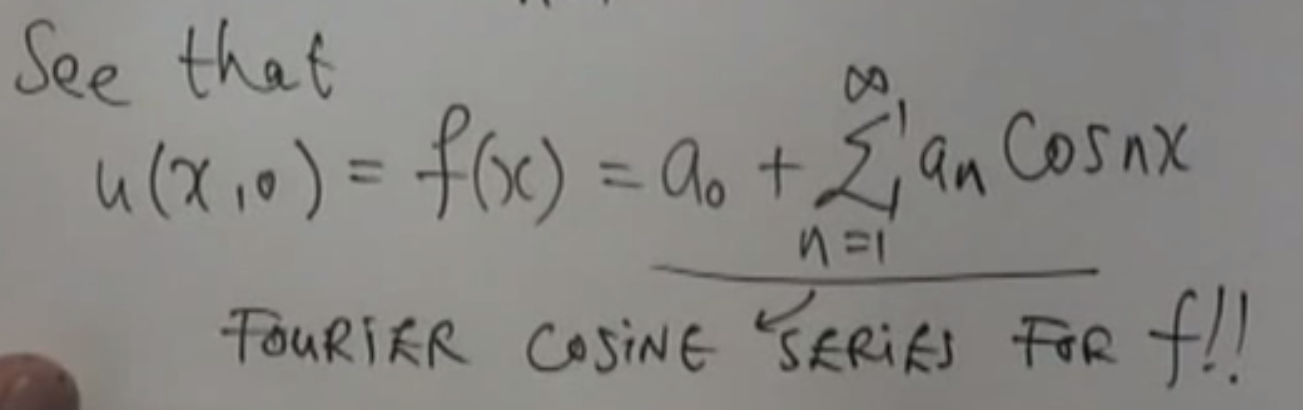 See that
u(x,0) = f(x) = a₀ + ∑_{n=1}^{∞} aₙ Cos nx
FOURIER COSINE SERIES FOR f!!